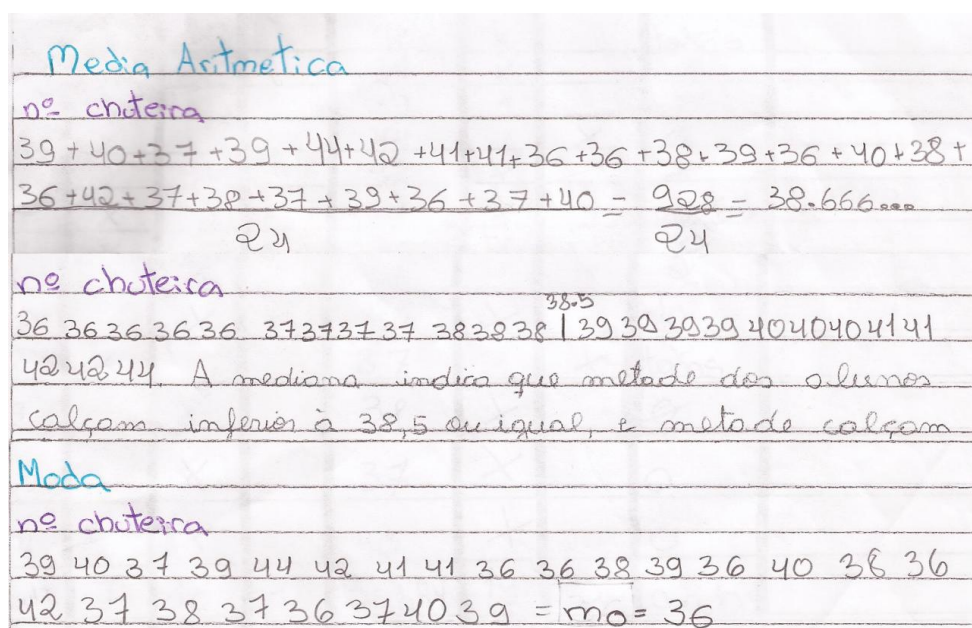 Media Aritmetica
nº chuteira
39 + 40 + 37 + 39 + 44 + 42 + 41 + 41 + 36 + 36 + 38 + 39 + 36 + 40 + 38 +
36 + 42 + 37 + 38 + 37 + 39 + 36 + 37 + 40 = 928 = 38.666...
24 24
nº chuteira
38.5
36 36 36 36 36 37 37 37 37 38 38 38 | 39 39 39 39 40 40 40 41 41
42 42 44. A mediana indica que metade dos alunos
calçam inferior à 38,5 ou igual, e metade calçam
Moda
nº chuteira
39 40 37 39 44 42 41 41 36 36 38 39 36 40 38 36
42 37 38 37 36 37 40 39 = mo = 36